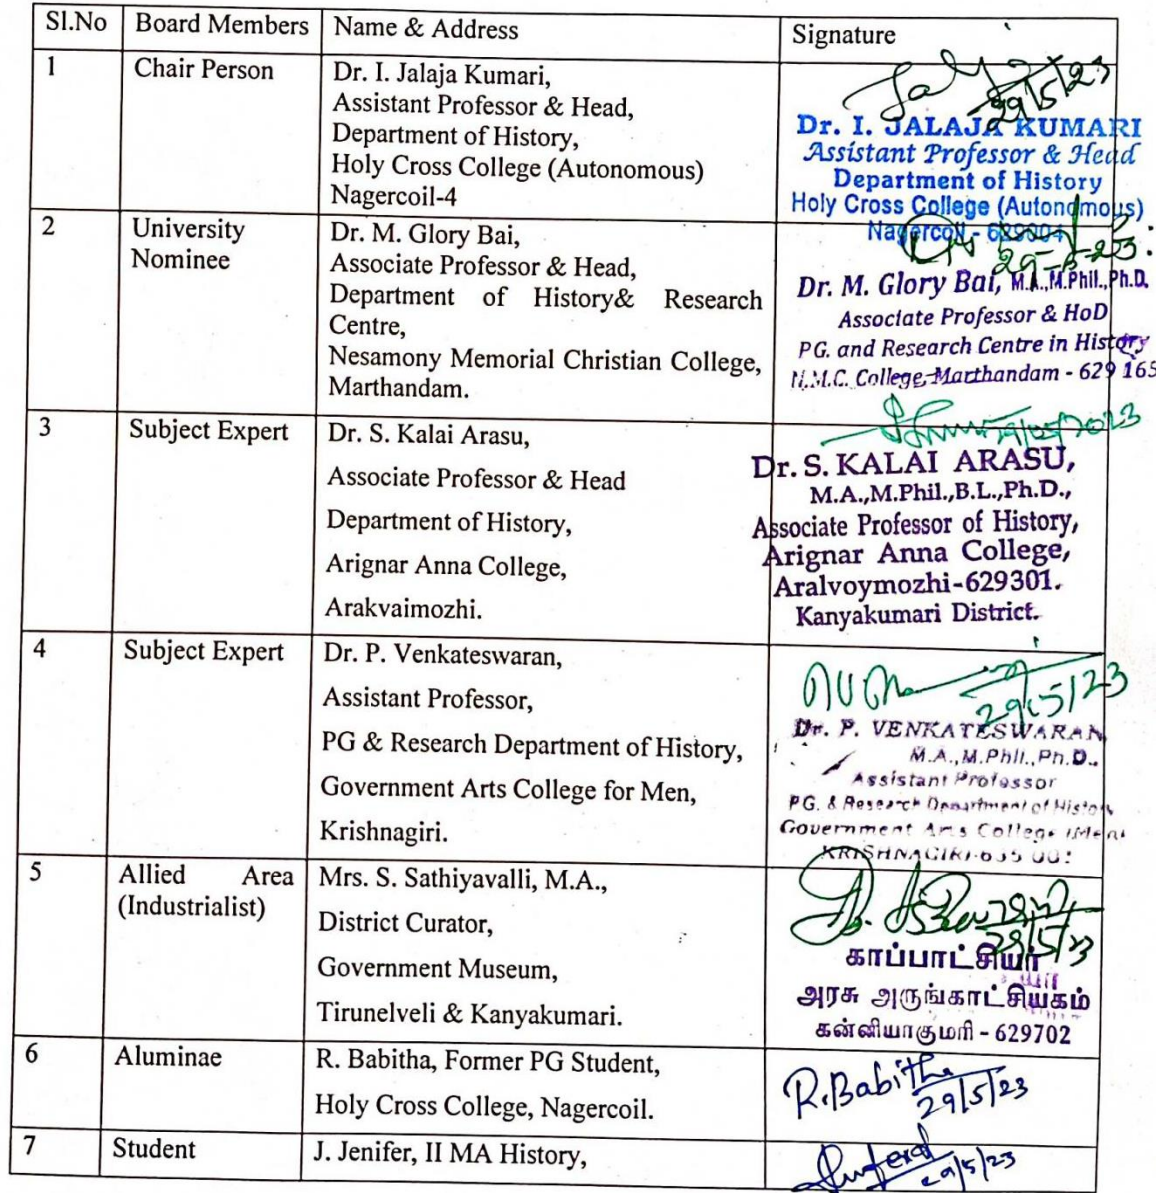 Sl.No Board Members Name & Address Signature
1 Chair Person Dr. I. Jalaja Kumari,
Assistant Professor & Head,
Department of History,
Holy Cross College (Autonomous)
Nagercoil-4
29/5/23
Dr. I. JALAJA KUMARI
Assistant Professor & Head
Department of History
Holy Cross College (Autonomous)
Nagercoil - 629004
2 University
Nominee
Dr. M. Glory Bai,
Associate Professor & Head,
Department of History& Research
Centre,
Nesamony Memorial Christian College,
Marthandam.
29-5-23.
Dr. M. Glory Bai, M.A.,M.Phil.,Ph.D,
Associate Professor & HoD
PG. and Research Centre in History
N.M.C. College, Marthandam - 629 165
3 Subject Expert Dr. S. Kalai Arasu,
Associate Professor & Head
Department of History,
Arignar Anna College,
Arakvaimozhi.
29/05/2023
Dr. S. KALAI ARASU,
M.A.,M.Phil.,B.L.,Ph.D.,
Associate Professor of History,
Arignar Anna College,
Aralvoymozhi-629301.
Kanyakumari District.
4 Subject Expert Dr. P. Venkateswaran,
Assistant Professor,
PG & Research Department of History,
Government Arts College for Men,
Krishnagiri.
29/5/23
Dr. P. VENKATESWARAN
M.A.,M.Phil.,Ph.D.,
Assistant Professor
PG. & Research Department of History
Government Arts College (Men)
KRISHNAGIRI-635 001
5 Allied Area
(Industrialist)
Mrs. S. Sathiyavalli, M.A.,
District Curator,
Government Museum,
Tirunelveli & Kanyakumari.
29/5/23
காப்பாட்சியர்
அரசு அருங்காட்சியகம்
கன்னியாகுமரி - 629702
6 Aluminae R. Babitha, Former PG Student,
Holy Cross College, Nagercoil.
R.Babitha
29/5/23
7 Student J. Jenifer, II MA History,
29/5/23